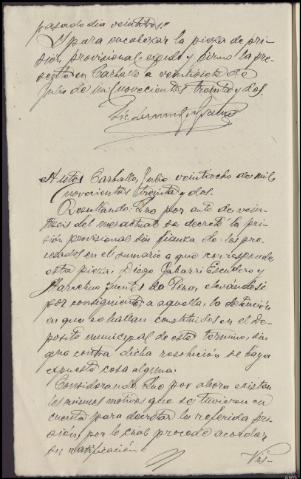 pasado dia veintitres.
Y para encabezar la pieza de pri-
sión provisional, expido y firmo la pre-
sente en Carballo a veintiocho de
Julio de mil novecientos treinta y dos.
Auto = Carballo, Julio veintiocho de mil
novecientos treinta y dos.
Resultando: Que por auto de vein-
titres del mes actual se decretó la pri-
sión provisional sin fianza de los pro-
cesados en el sumario a que corresponde
esta pieza, Diego Gabarri Escudero y
elevándose
por consiguiente a aquella la detención
en que se hallan constituidos en el de-
posito municipal de este termino, sin
que contra dicha resolución se haya
expuesto cosa alguna.
Considerando: Que por ahora existen
los mismos motivos que se tuvieron en
cuenta para decretar la referida pri-
sion, por lo cual procede acordar
su ratificación.
Vis-